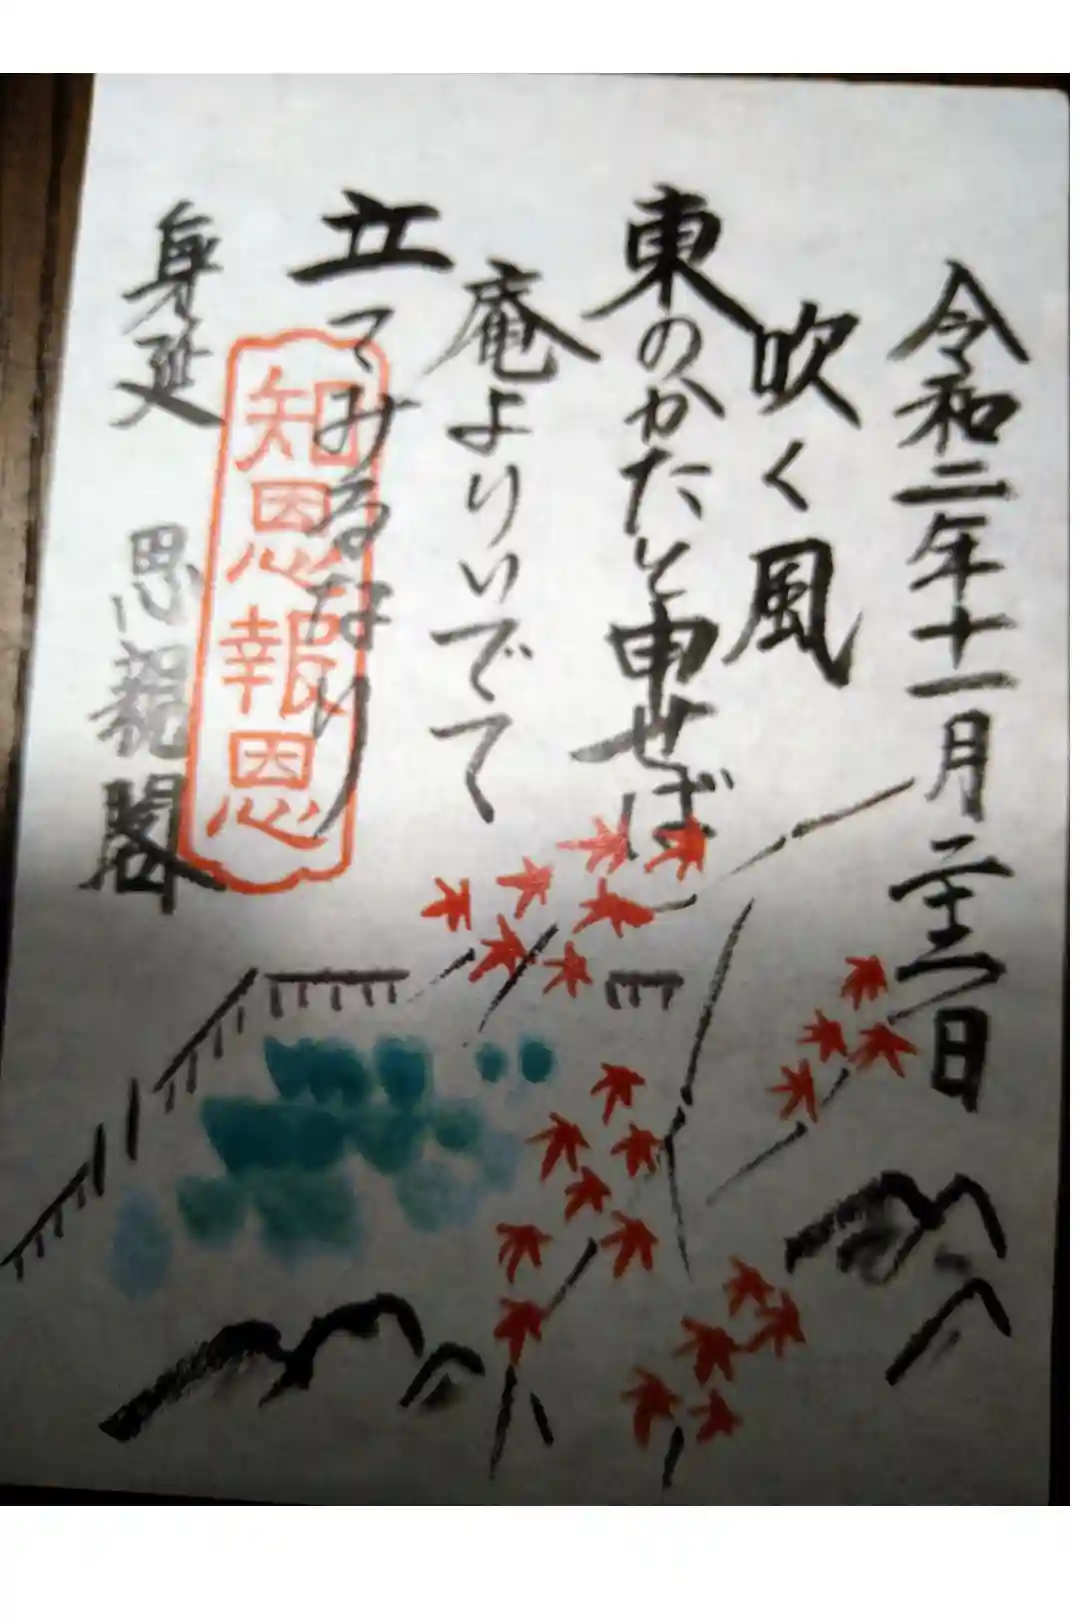 令和二年十一月二十二日
吹く風
東のかたと申せば
庵よりいでて
立てみるなり
知恩報恩
身延 思親閣